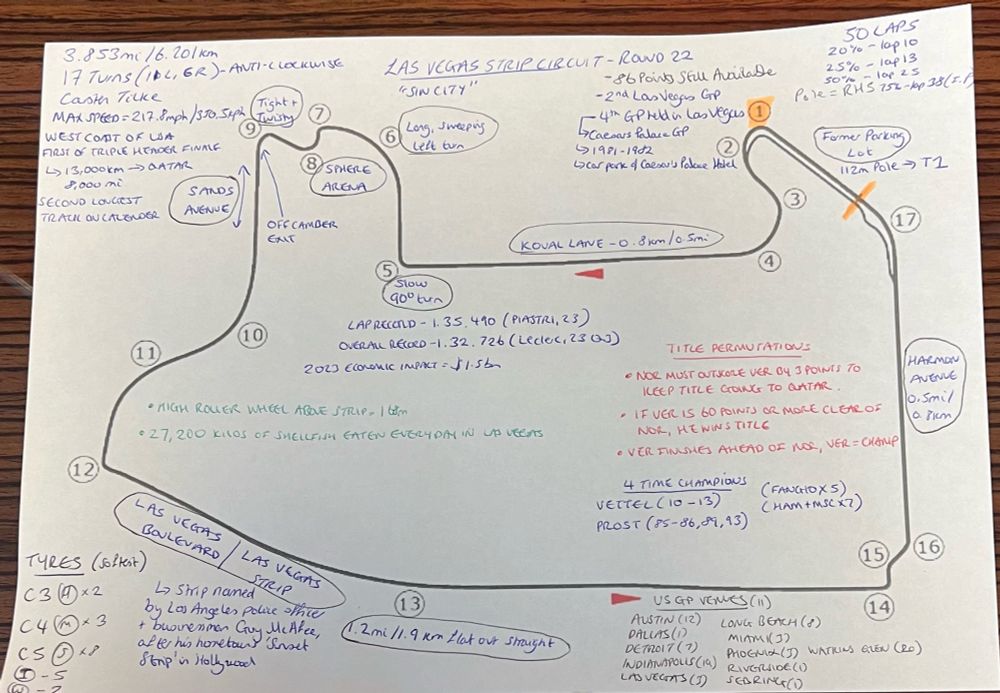 3.853mi/6.201km
17 TURNS (10L, 6R) - ANTI-CLOCKWISE
Carsten Tilke
MAX SPEED = 217.8mph/350.5kph
WEST COAST OF USA
FIRST OF TRIPLE HEADER FINALE
↳ 13,000km → QATAR
8,000 mi
SECOND LONGEST
TRACK ON CALENDER
LAS VEGAS STRIP CIRCUIT - ROUND 22
"SIN CITY"
- 86 Points Still Available
- 2nd Las Vegas GP
- 4th GP Held in Las Vegas
↳ Caesars Palace GP
↳ 1981-1982
↳ car park of Caesar's Palace Hotel
50 LAPS
20% - lap 10
25% - lap 13
50% - lap 25
75% - lap 38
Pole = RHS
Former Parking
Lot
112m Pole → T1
1
2
3
4
17
Tight +
Twisty
9
7
8
6
Long, Sweeping
Left turn
SPHERE
ARENA
SANDS
AVENUE
OFF CAMBER
EXIT
KOVAL LANE - 0.8km/0.5mi
5
Slow
90° turn
10
11
LAP RECORD - 1.35.490 (PIASTRI, 23)
OVERALL RECORD - 1.32.726 (Leclerc, 23 Q3)
2023 ECONOMIC IMPACT = $1.5bn
• HIGH ROLLER WHEEL ABOVE STRIP - 168m
• 27,200 KILOS OF SHELLFISH EATEN EVERYDAY IN LAS VEGAS
TITLE PERMUTATIONS
• NOR MUST OUTSCORE VER BY 3 POINTS TO
KEEP TITLE GOING TO QATAR.
• IF VER IS 60 POINTS OR MORE CLEAR OF
NOR, HE WINS TITLE
• VER FINISHES AHEAD OF NOR, VER = CHAMP
HARMON
AVENUE
0.5mi/
0.8km
4 TIME CHAMPIONS
VETTEL (10-13)
PROST (85-86, 89, 93)
(FANGIO X 5)
(HAM + MSC X 7)
12
LAS VEGAS
BOULEVARD / LAS VEGAS
STRIP
↳ Strip named
by Los Angeles police officer
+ businessman Guy McAfee,
after his hometown's 'Sunset
Strip' in Hollywood
13
1.2mi/1.9km flat out straight
15
16
14
TYRES (Softest)
C3 (H) x 2
C4 (M) x 3
C5 (S) x 8
I - 5
W - 2
US GP VENUES (11)
AUSTIN (12)
DALLAS (1)
DETROIT (7)
INDIANAPOLIS (19)
LAS VEGAS (3)
LONG BEACH (8)
MIAMI (3)
PHOENIX (3) WATKINS GLEN (20)
RIVERSIDE (1)
SEBRING (1)